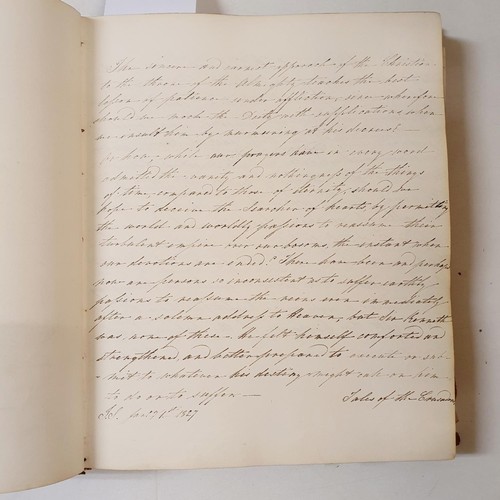 The sincere and earnest approach of the Christian
to the throne of the Almighty teaches the best
lesson of patience under affliction, since wherefore
should we mock the Deity with supplications when
we insult him by murmuring at his decrees? —
or how, while our prayers have in every word
admitted the vanity and nothingness of the things
of time compared to those of eternity, should we
hope to deceive the searcher of hearts, by permitting
the world and worldly passions to reassume their
turbulent empire over our bosoms, the instant when
our devotions are ended? There have been and perhaps
now are persons so inconsistent as to suffer earthly
passions to reassume the reins even immediately
after a solemn address to Heaven; but Sir Kenneth
was none of these — He felt himself comforted and
strengthened, and better prepared to execute or sub-
-mit to whatever his destiny might call on him
to do or to suffer —
Tales of the Crusaders
1st 1827